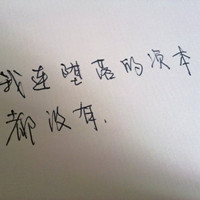 我连堕落的资本
都没有.